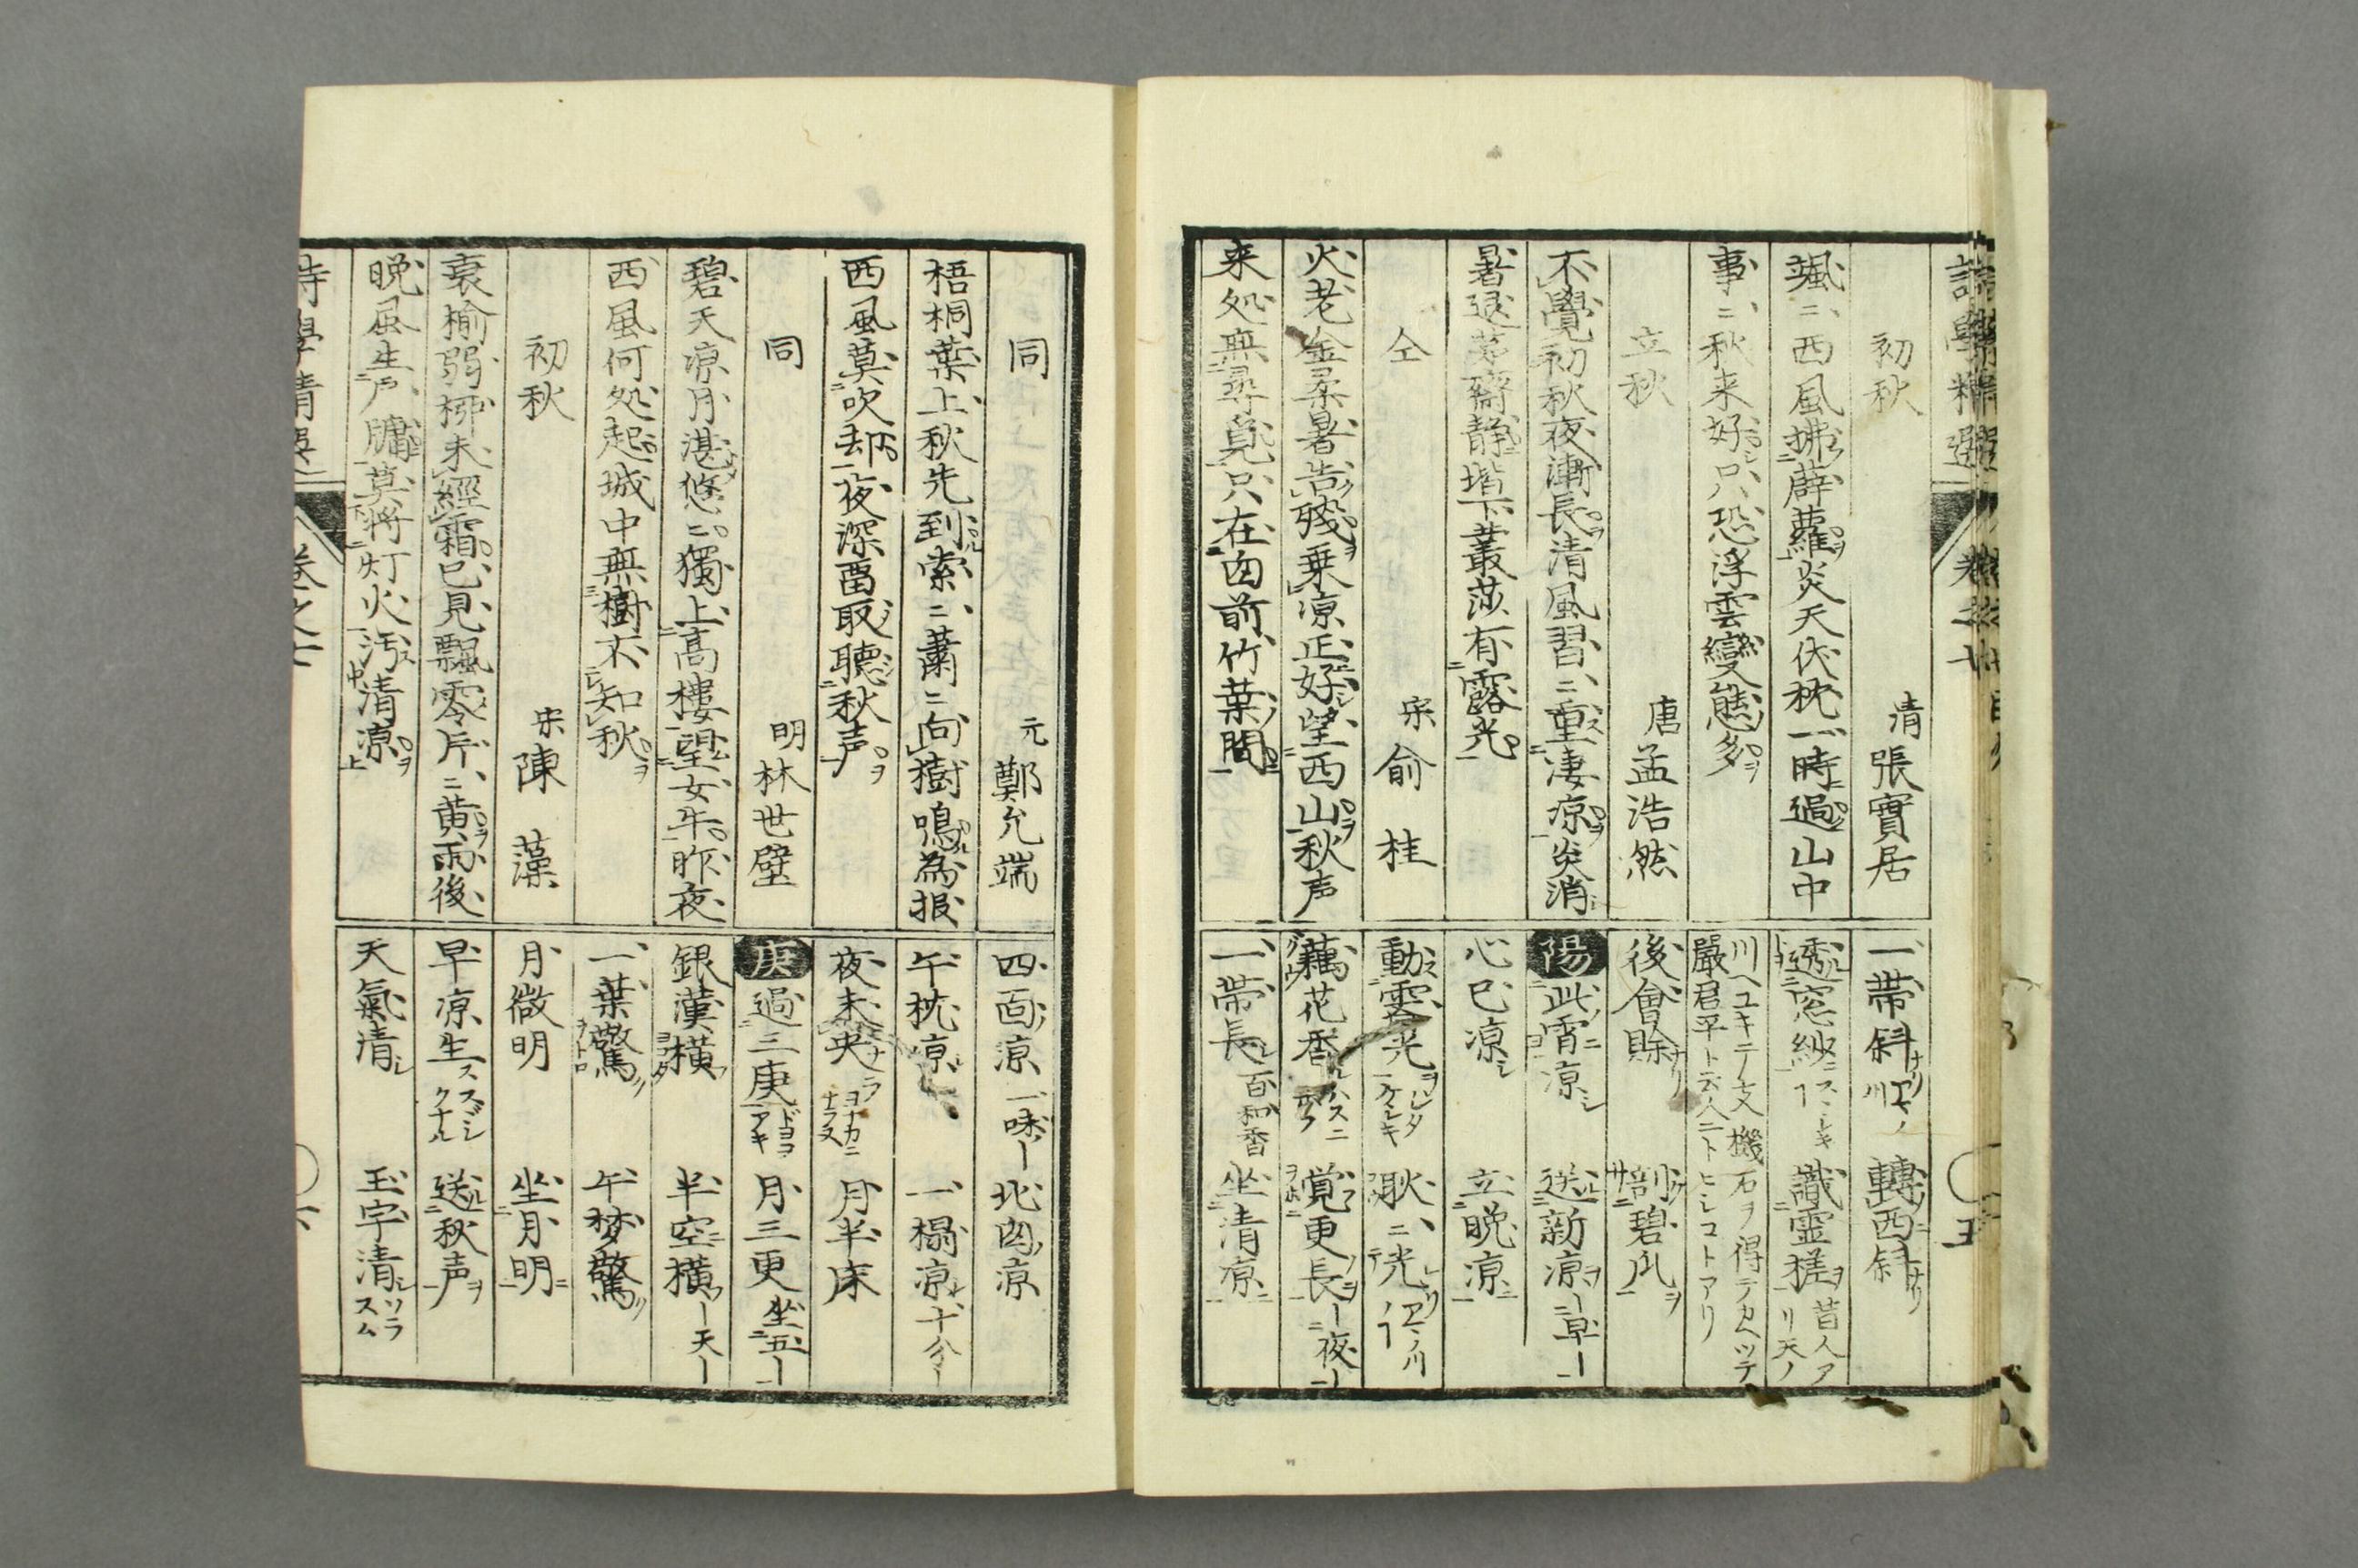 初秋　清張實居
颯ニ西風拂薜蘿炎天伏枕一時過山中
事ニ秋来好只恐浮雲變態多
立秋　唐孟浩然
不覺初秋夜漸長清風習ニ重凄凉炎消
暑退茅齋静堦下叢莎有露光
仝　宋俞桂
火老金柔暑告殘乗凉正好望西山秋声
来処無尋覓只在囱前竹葉間
一帯斜　轉西斜
透窓紗　識霊槎昔人アリ天ノ
川ヘユキテ支機石ヲ得テカヘツテ
嚴君平ト云人ニトヒシコトアリ
後會賖　剖碧瓜
陽　此宵凉　送新凉ー早ー
心已凉　立晩凉
動雲光　耿ニ光
藕花香　覚更長ー夜ー
一帯長百和香　坐清凉
同　元鄭允端
梧桐葉上秋先到索ニ蕭ニ向樹鳴為报
西風莫吹却夜深畱取聴秋声
同　明林世壁
碧天凉月湛悠ニ獨上高樓望女牛昨夜
西風何処起城中無樹不知秋
初秋　宋陳藻
衰榆弱柳未經霜已見飄零片ニ黄雨後
晩風生戸牖莫将灯火汚清凉
四面凉一味ー　北囱凉
午枕凉　一榻凉十分ー
夜未央ヨナカニナラヌ　月半床
庚　過三庚　月三更坐五ー
銀漢横　半空横ー天ー
一葉驚　午梦驚
月微明　坐月明
早凉生スズシクナル　送秋声
天氣清　玉宇清ソラスム